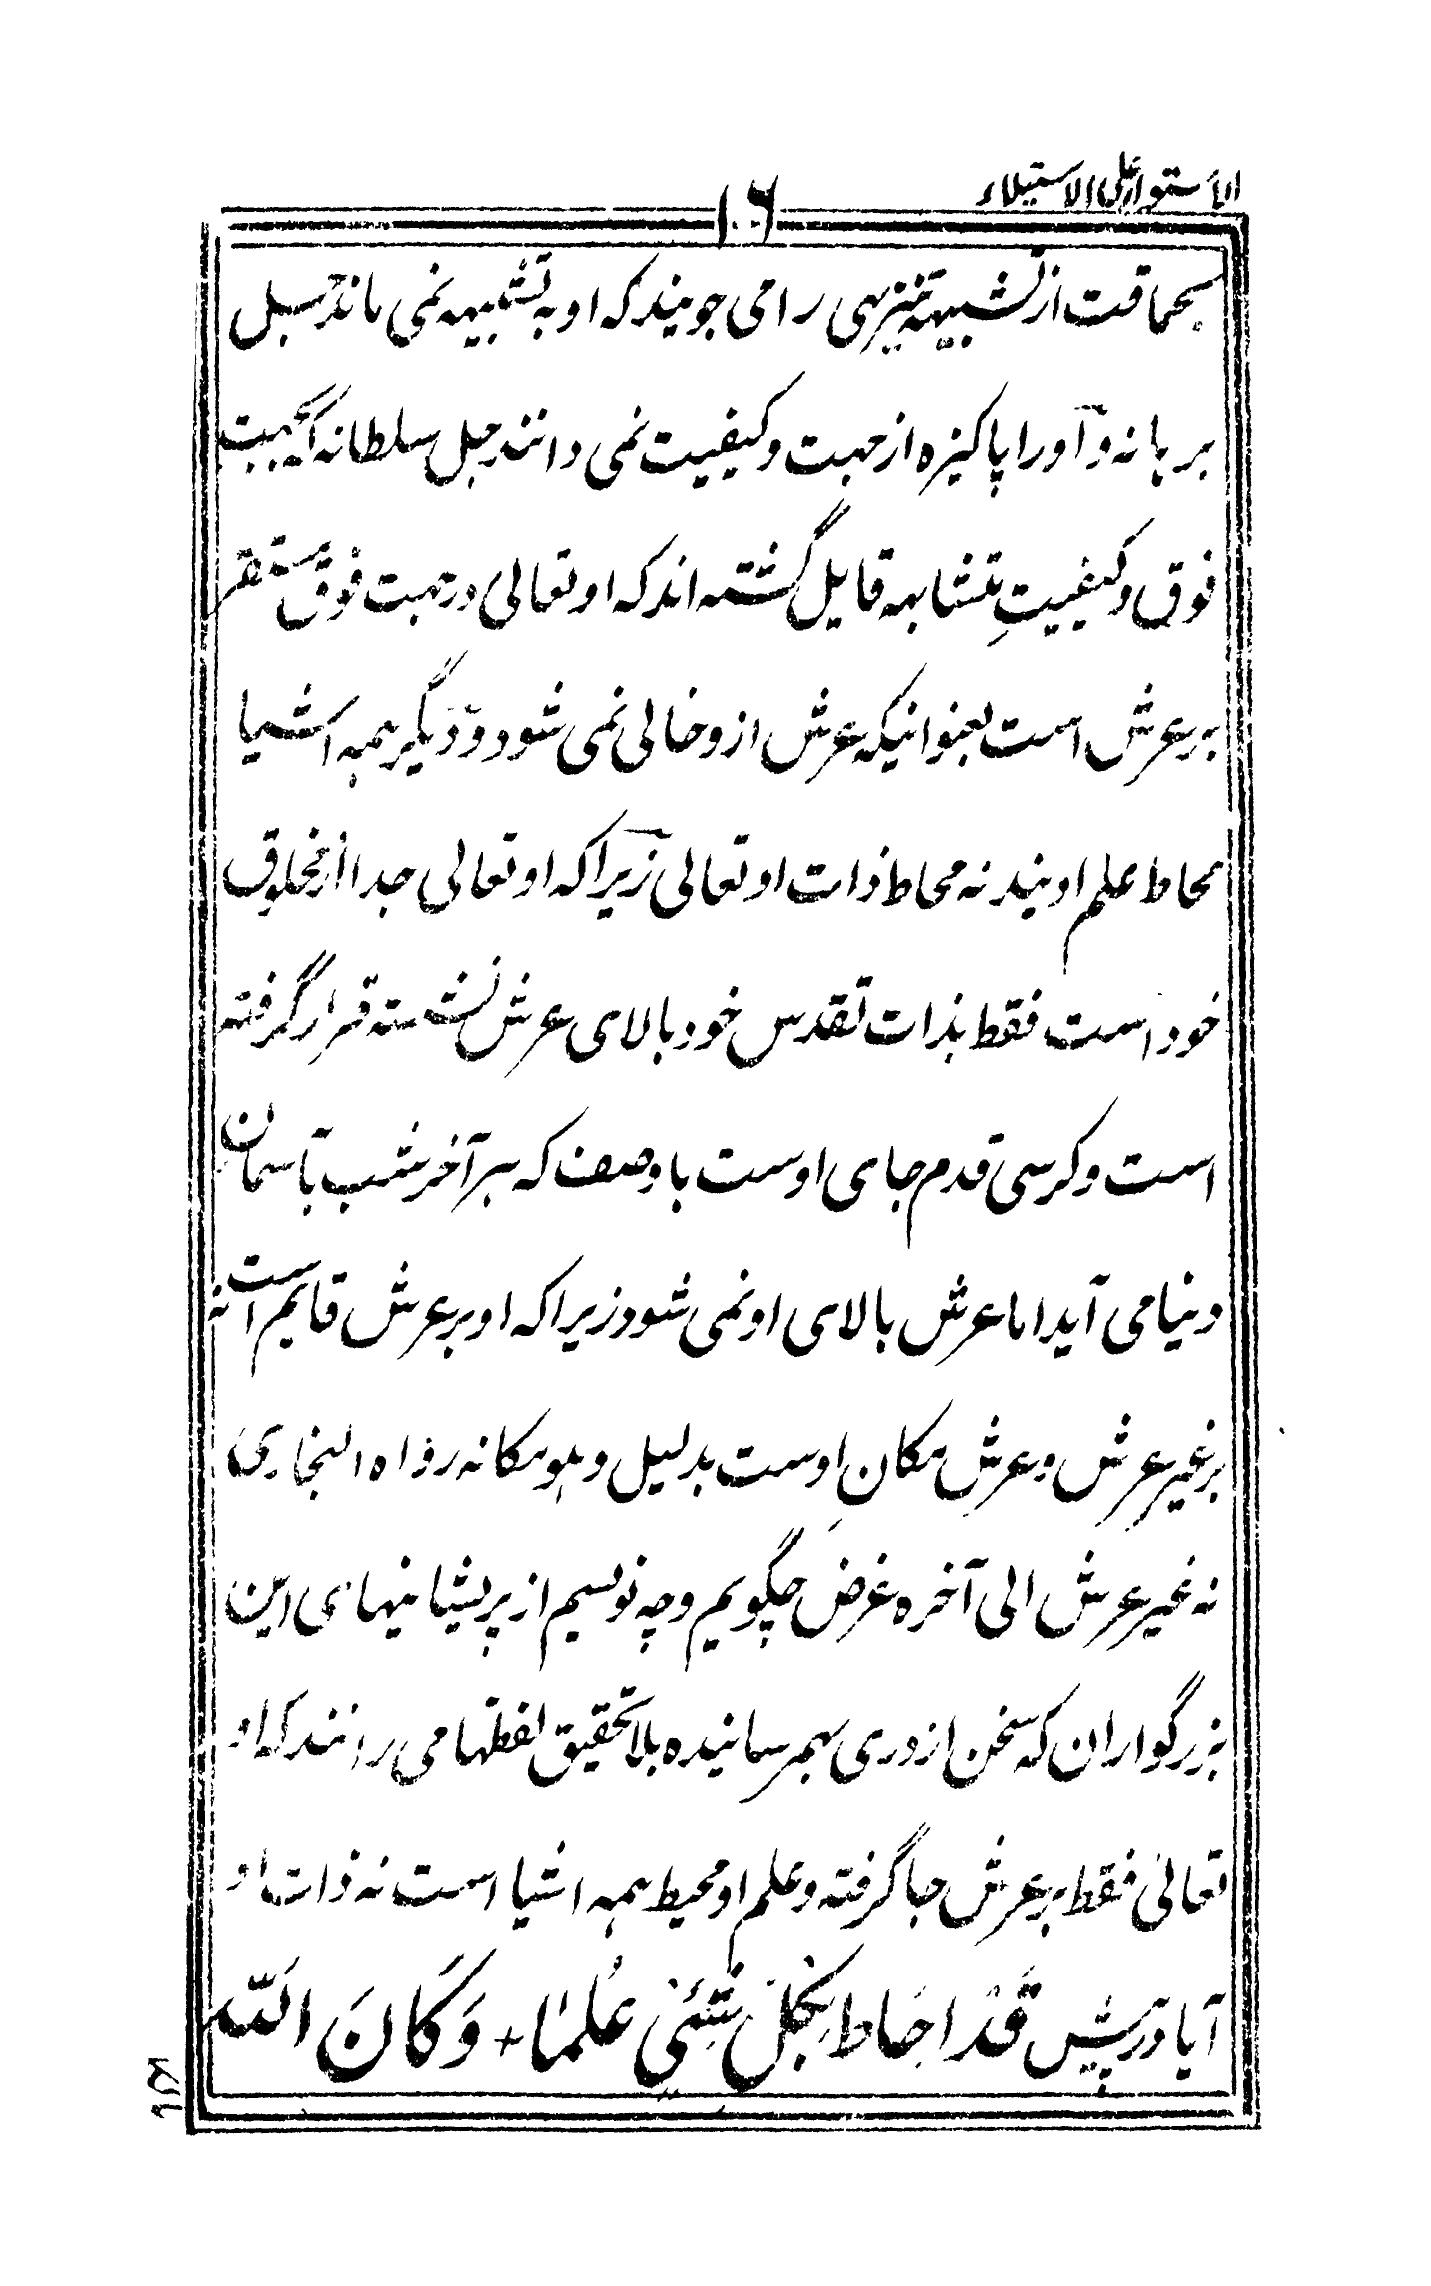 الاستواء علی الاستیلاء
۱۰۶
بحماقت از تشبیهه تنزیهی را می جویند که او به تشبیهه نمی ماند جل
برهانه و او را پاکیزه از جهت و کیفیت نمی دانند جل سلطانه که بجهت
فوق و کیفیتِ متشابهه قایل گشته اند که او تعالی در جهت فوق مستقر
بر عرش است بعنوانیکه عرش ازو خالی نمی شود و دیگر همه اشیا
محاط علم اویند نه محاط ذات او تعالی زیرا که او تعالی جدا از مخلوق
خود است فقط بذات تقدس خود بالای عرش نشسته قرار گرفته
است و کرسی قدم جای اوست با وصف که هر آخر شب تا آسمان
دنیا می آید اما عرش بالای او نمی شود زیرا که او بر عرش قایم است نه
بر غیر عرش و عرش مکانِ اوست بدلیل و هو مکانه رواه البخاری
نه غیر عرش الی آخره غرض چگویم و چه نویسم از پریشانیهای این
بزرگواران که سخن از دوری بهم رسانیده بلا تحقیق لفظها می رانند که او
تعالی فقط بر عرش جا گرفته و علم او محیط همه اشیا است نه ذات او
آیا در پیش قَدْ اَحَاطَ بِکُلِّ شَیْئٍ عُلْمًاء + وَ کَانَ اللّٰه